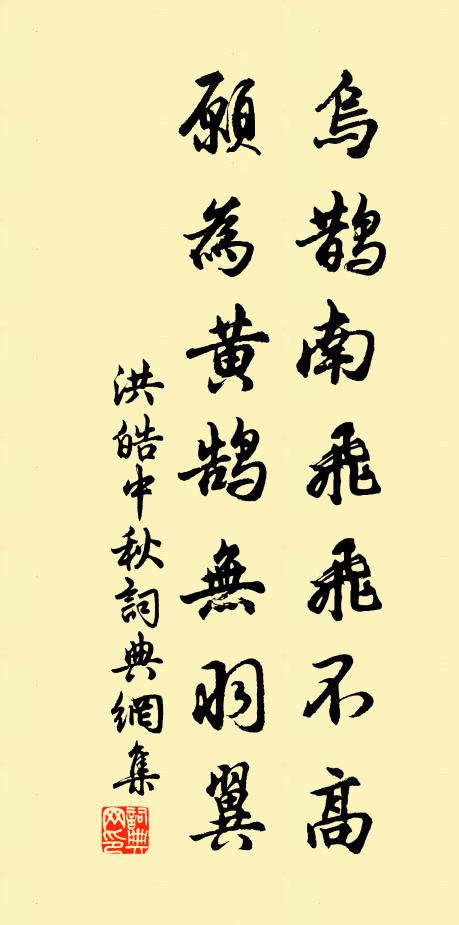 烏鵲南飛飛不高
願為黃鵠無羽翼
洪皓中秋詞典網集
詞典网印